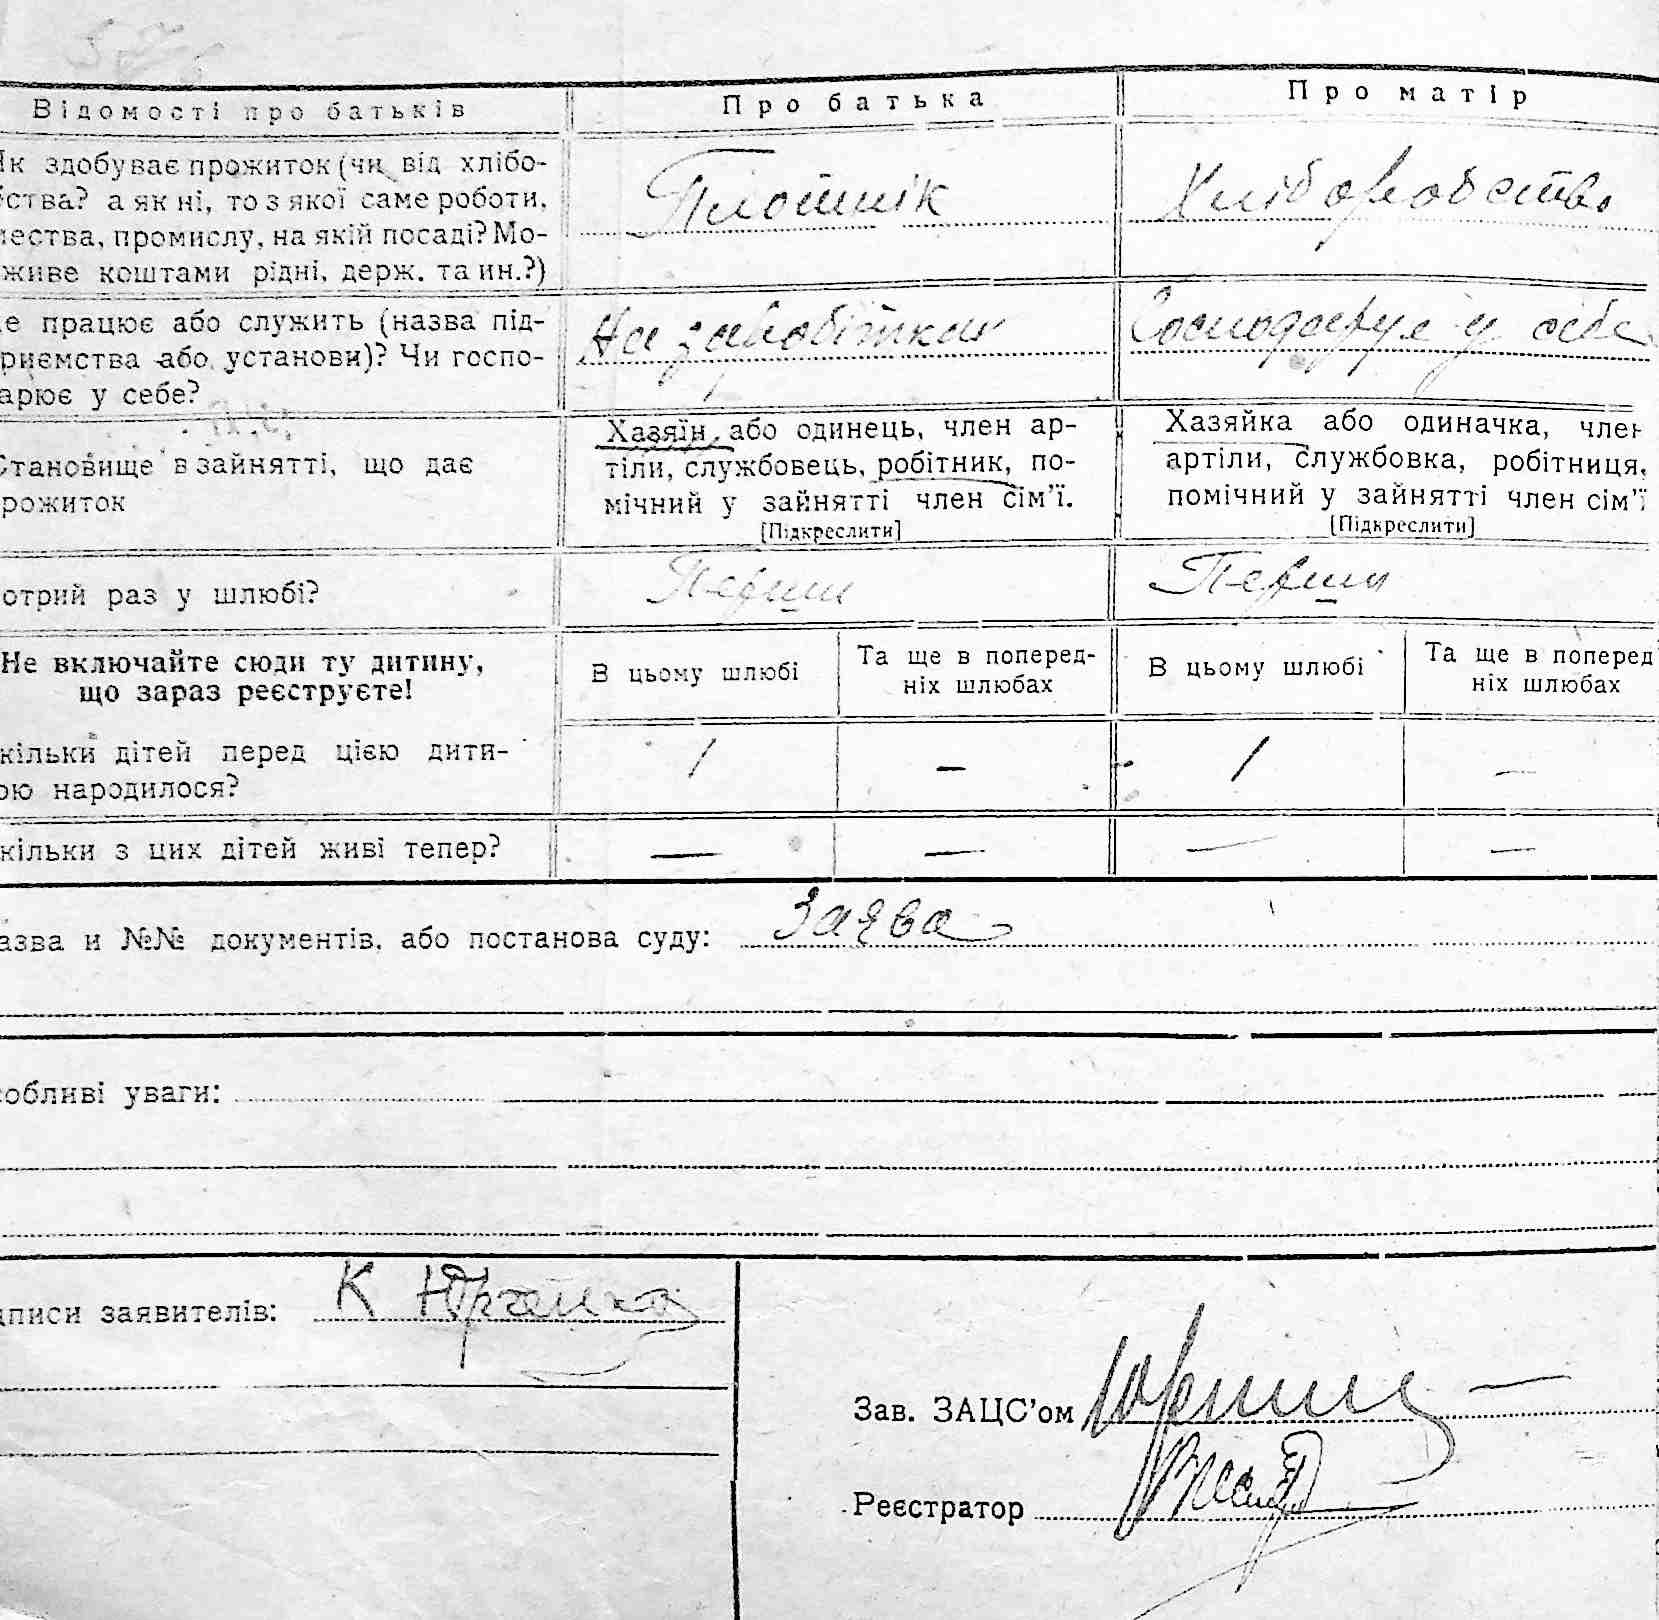 Відомості про батьків
Про батька
Про матір
Як здобуває прожиток (чи від хлібо-
ства? а як ні, то з якої саме роботи,
мества, промислу, на якій посаді? Мо-
живе коштами рідні, держ. та ин.?)
Плотнік
Хліборобство
е працює або служить (назва під-
риємства або установи)? Чи госпо-
арює у себе?
На заробітках
Господарує у себе
Становище в зайнятті, що дає
рожиток
Хазяїн, або одинець, член ар-
тіли, службовець, робітник, по-
мічний у зайнятті член сім'ї.
[Підкреслити]
Хазяйка або одиначка, член
артіли, службовка, робітниця,
помічний у зайнятті член сім'ї
[Підкреслити]
отрий раз у шлюбі?
Перший
Перший
Не включайте сюди ту дитину,
що зараз реєструєте!
В цьому шлюбі
Та ще в поперед-
ніх шлюбах
В цьому шлюбі
Та ще в поперед
ніх шлюбах
кільки дітей перед цією дити-
ою народилося?
1 – 1 —
кільки з цих дітей живі тепер?
— — — —
азва и №№ документів, або постанова суду: Заява
собливі уваги:
дписи заявителів: К
Зав. ЗАЦС'ом
Реєстратор